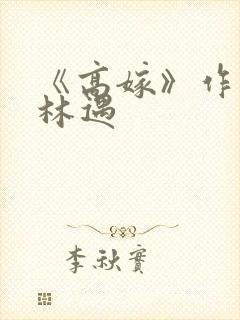 《高嫁》作
林遇
李秋實